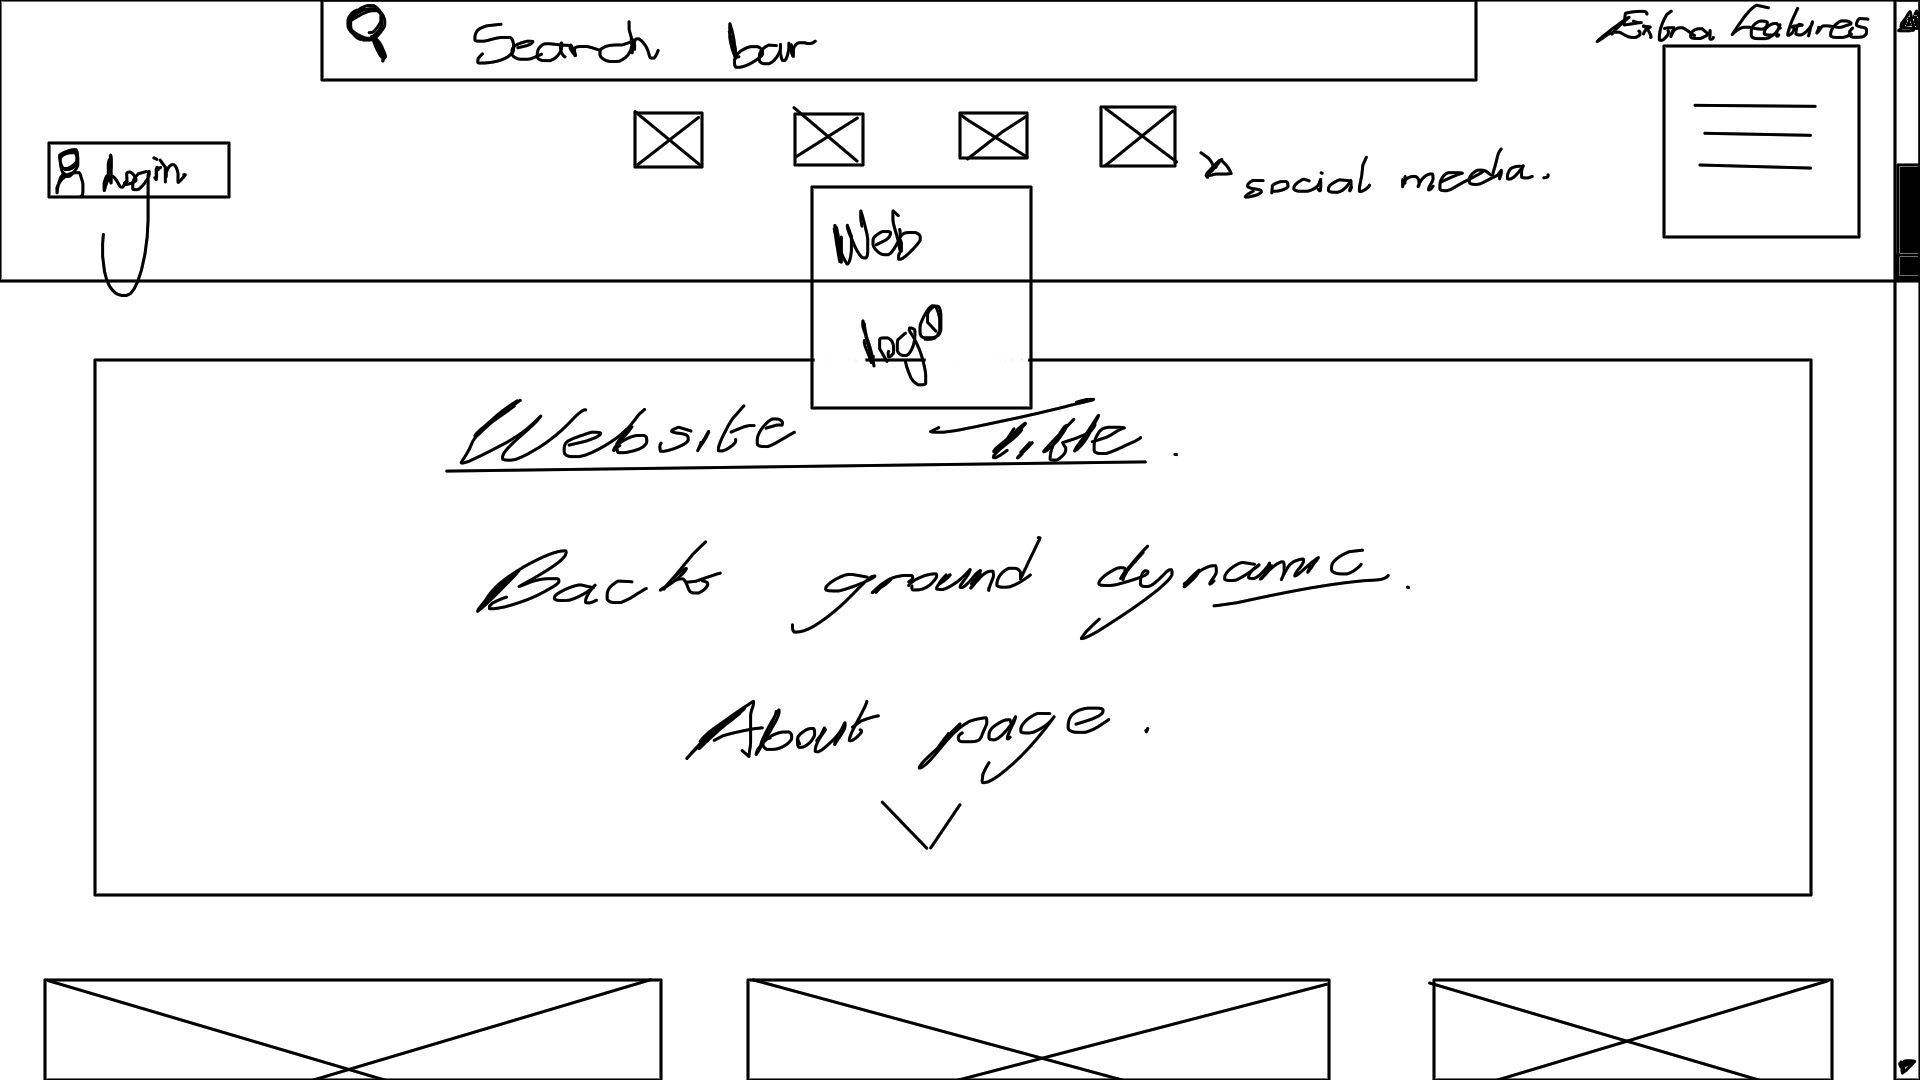 Search bar
Extra features
Login
social media.
Web
logo
Website Title.
Back ground dynamic.
About page.